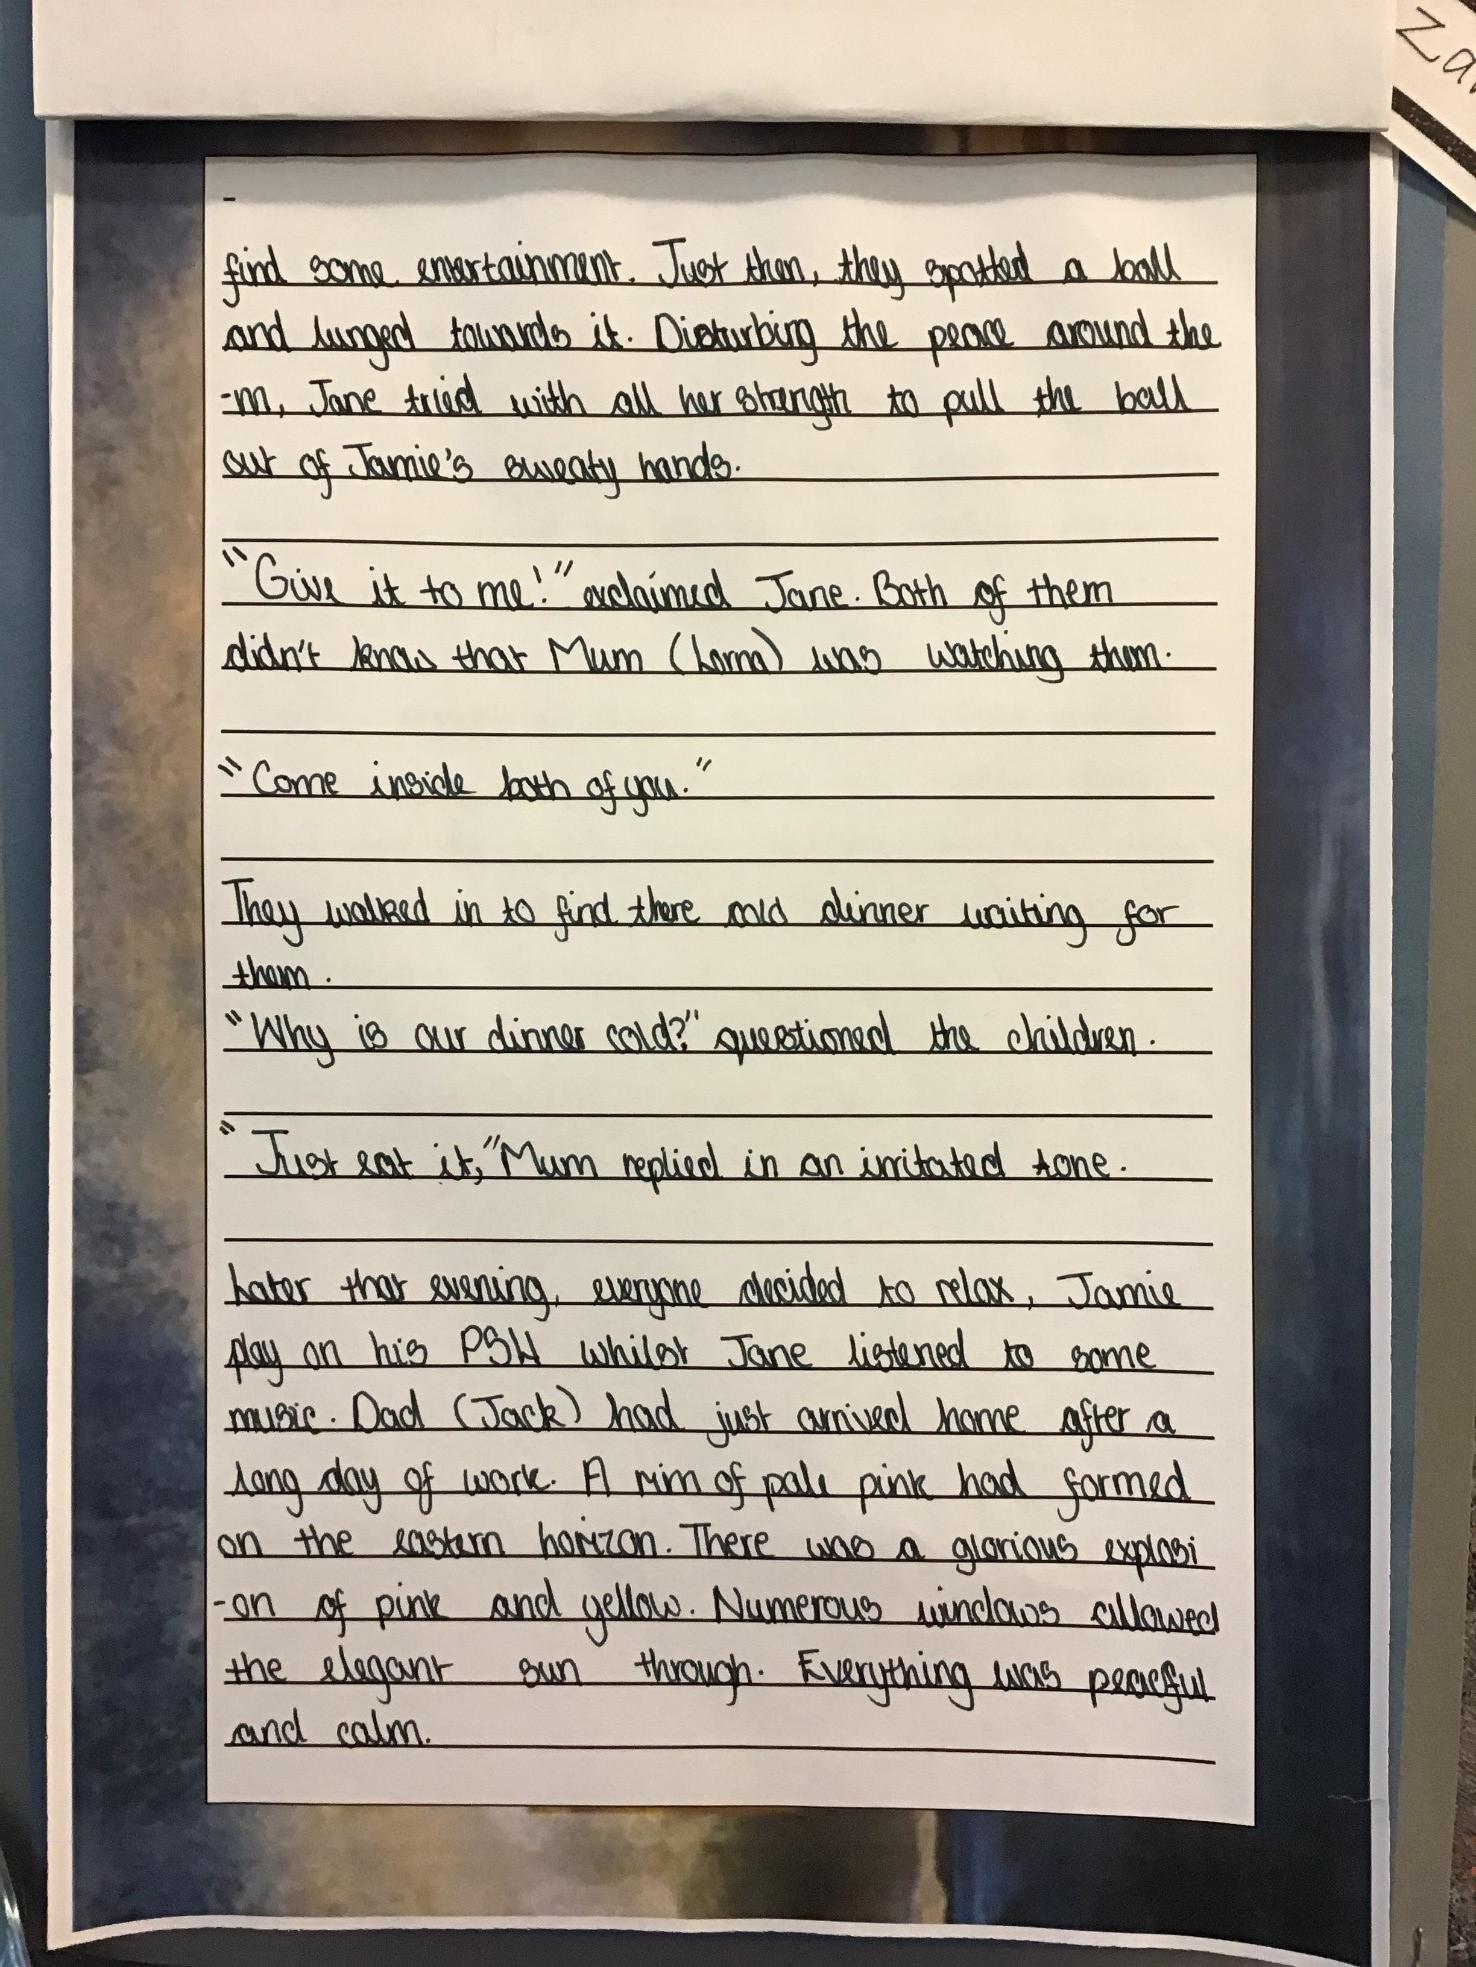 Za
-
find some entertainment. Just then, they spotted a ball
and lunged towards it. Disturbing the peace around the
-m, Jane tried with all her strength to pull the ball
out of Jamie's sweaty hands.
"Give it to me!" exclaimed Jane. Both of them
didn't know that Mum (Lorna) was watching them.
"Come inside both of you."
They walked in to find there cold dinner waiting for
them.
"Why is our dinner cold?" questioned the children.
"Just eat it," Mum replied in an irritated tone.
Later that evening, everyone decided to relax, Jamie
play on his PS4 whilst Jane listened to some
music. Dad (Jack) had just arrived home after a
long day of work. A rim of pale pink had formed
on the eastern horizon. There was a glorious explosi
-on of pink and yellow. Numerous windows allowed
the elegant sun through. Everything was peaceful
and calm.